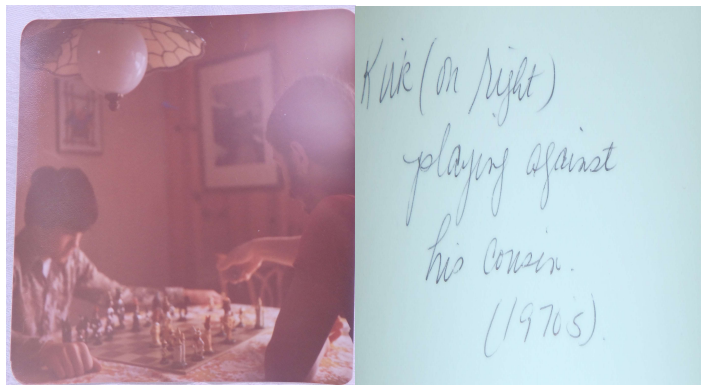 Kirk (on right)
playing against
his cousin.
(1970's).